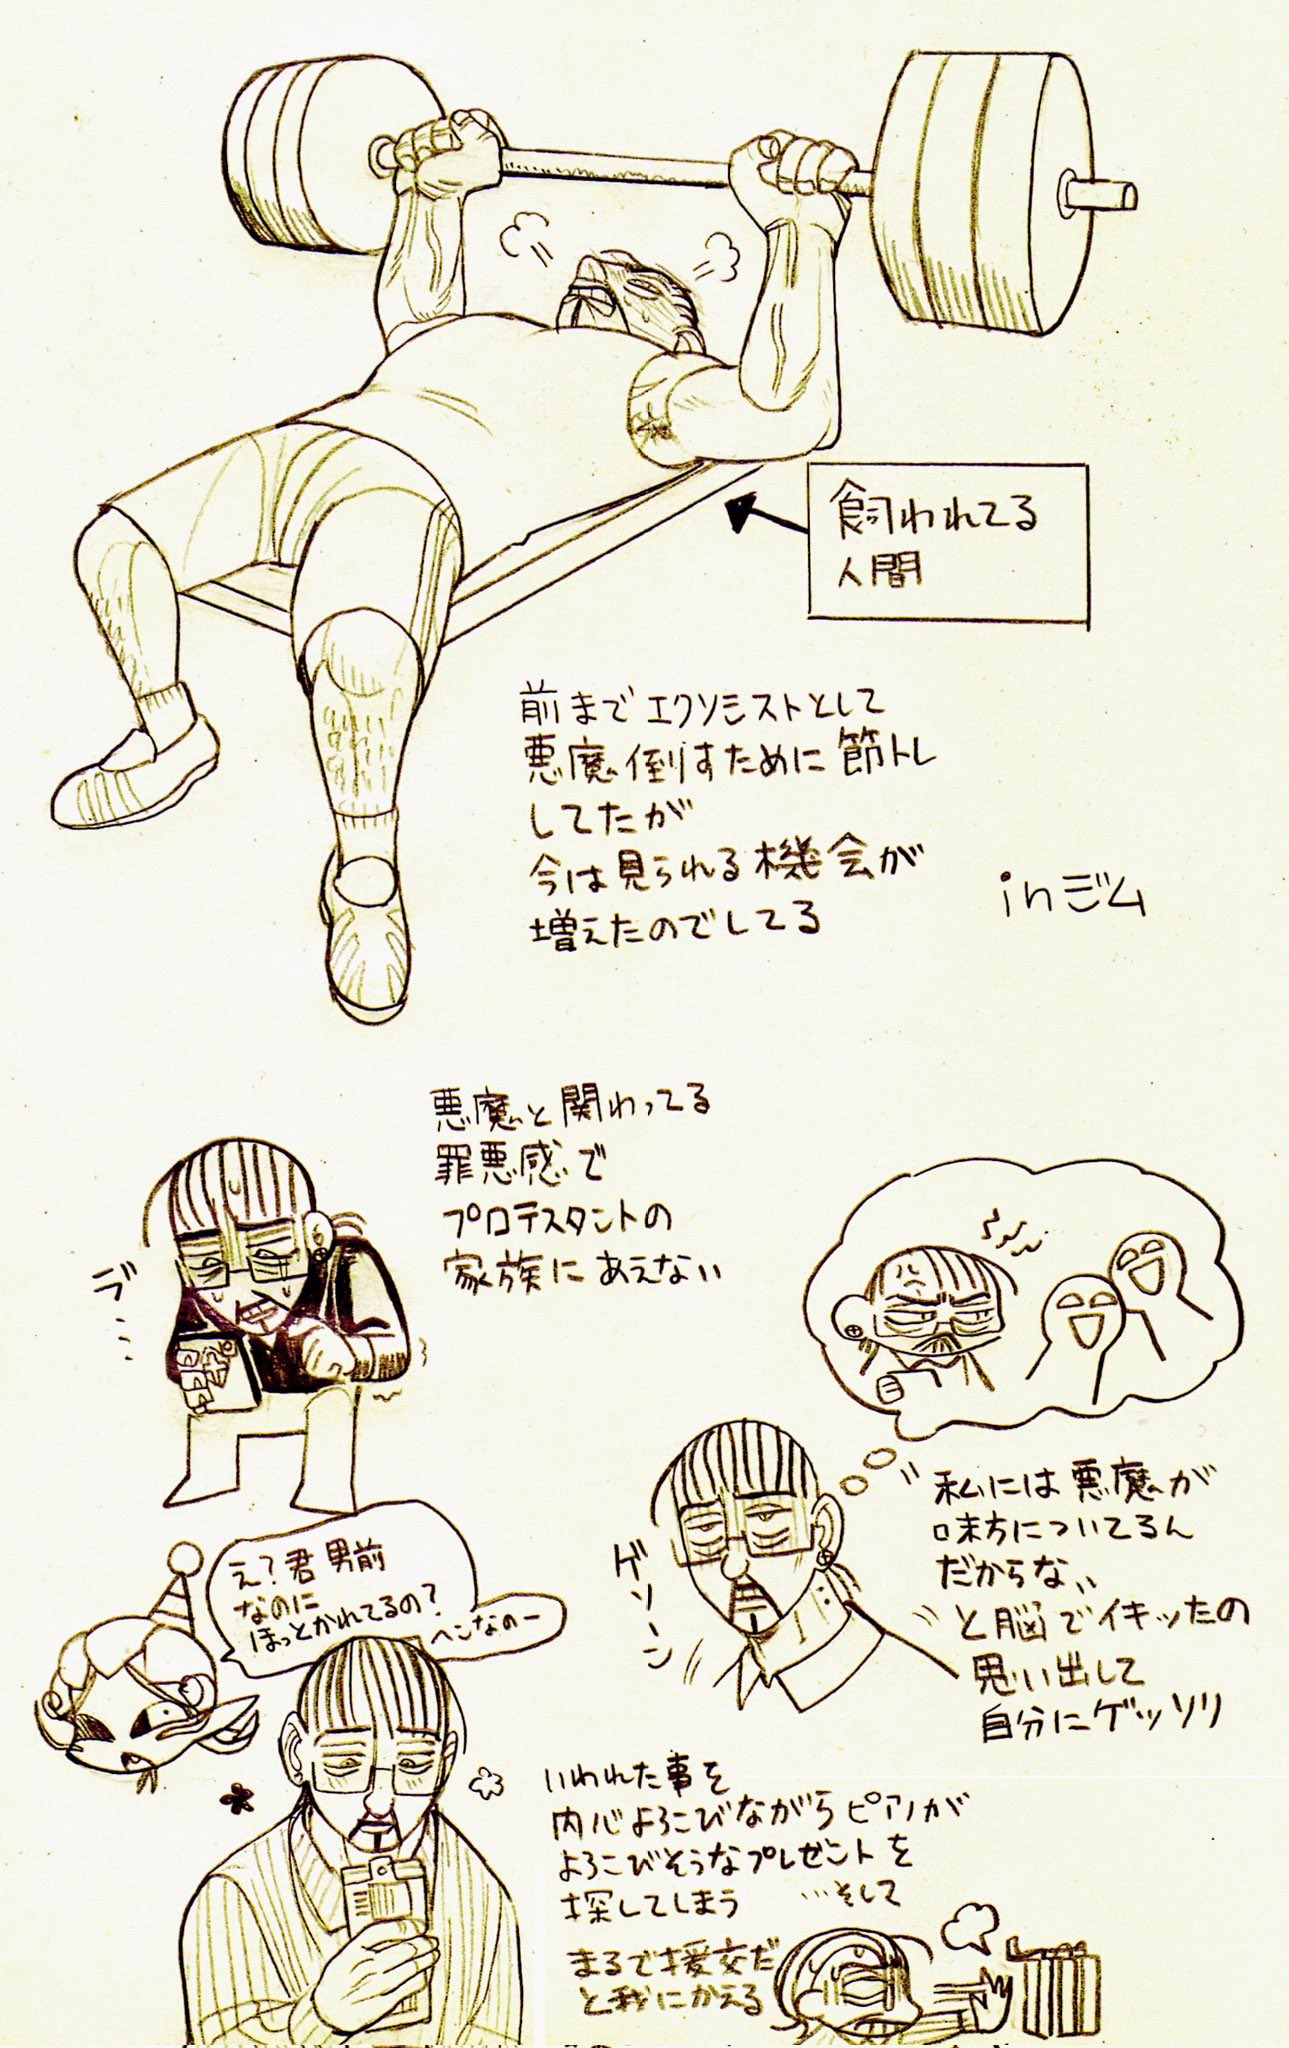 飼われてる
人間
前までエクソシストとして
悪魔倒すために筋トレ
してたが
今は見られる機会が
増えたのでしてる
inジム
悪魔と関わってる
罪悪感で
プロテスタントの
家族にあえない
私には悪魔が
味方についてるん
だからなぃ
と脳でイキッたの
思い出して
自分にゲッソリ
ゲソーン
え?君男前
なのに
ほっとかれてるの?
ヘンなのー
いわれた事を
内心よろこびながらピアノが
よろこびそうなプレゼントを
探してしまう …そして
まるで援交だ
と我にかえる